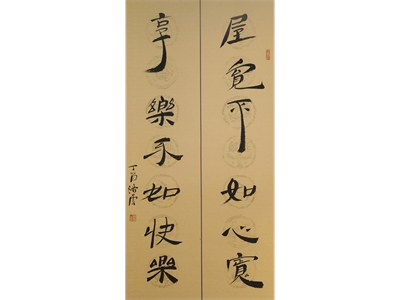 屋寬不如心寬
享樂不如快樂
丁酉